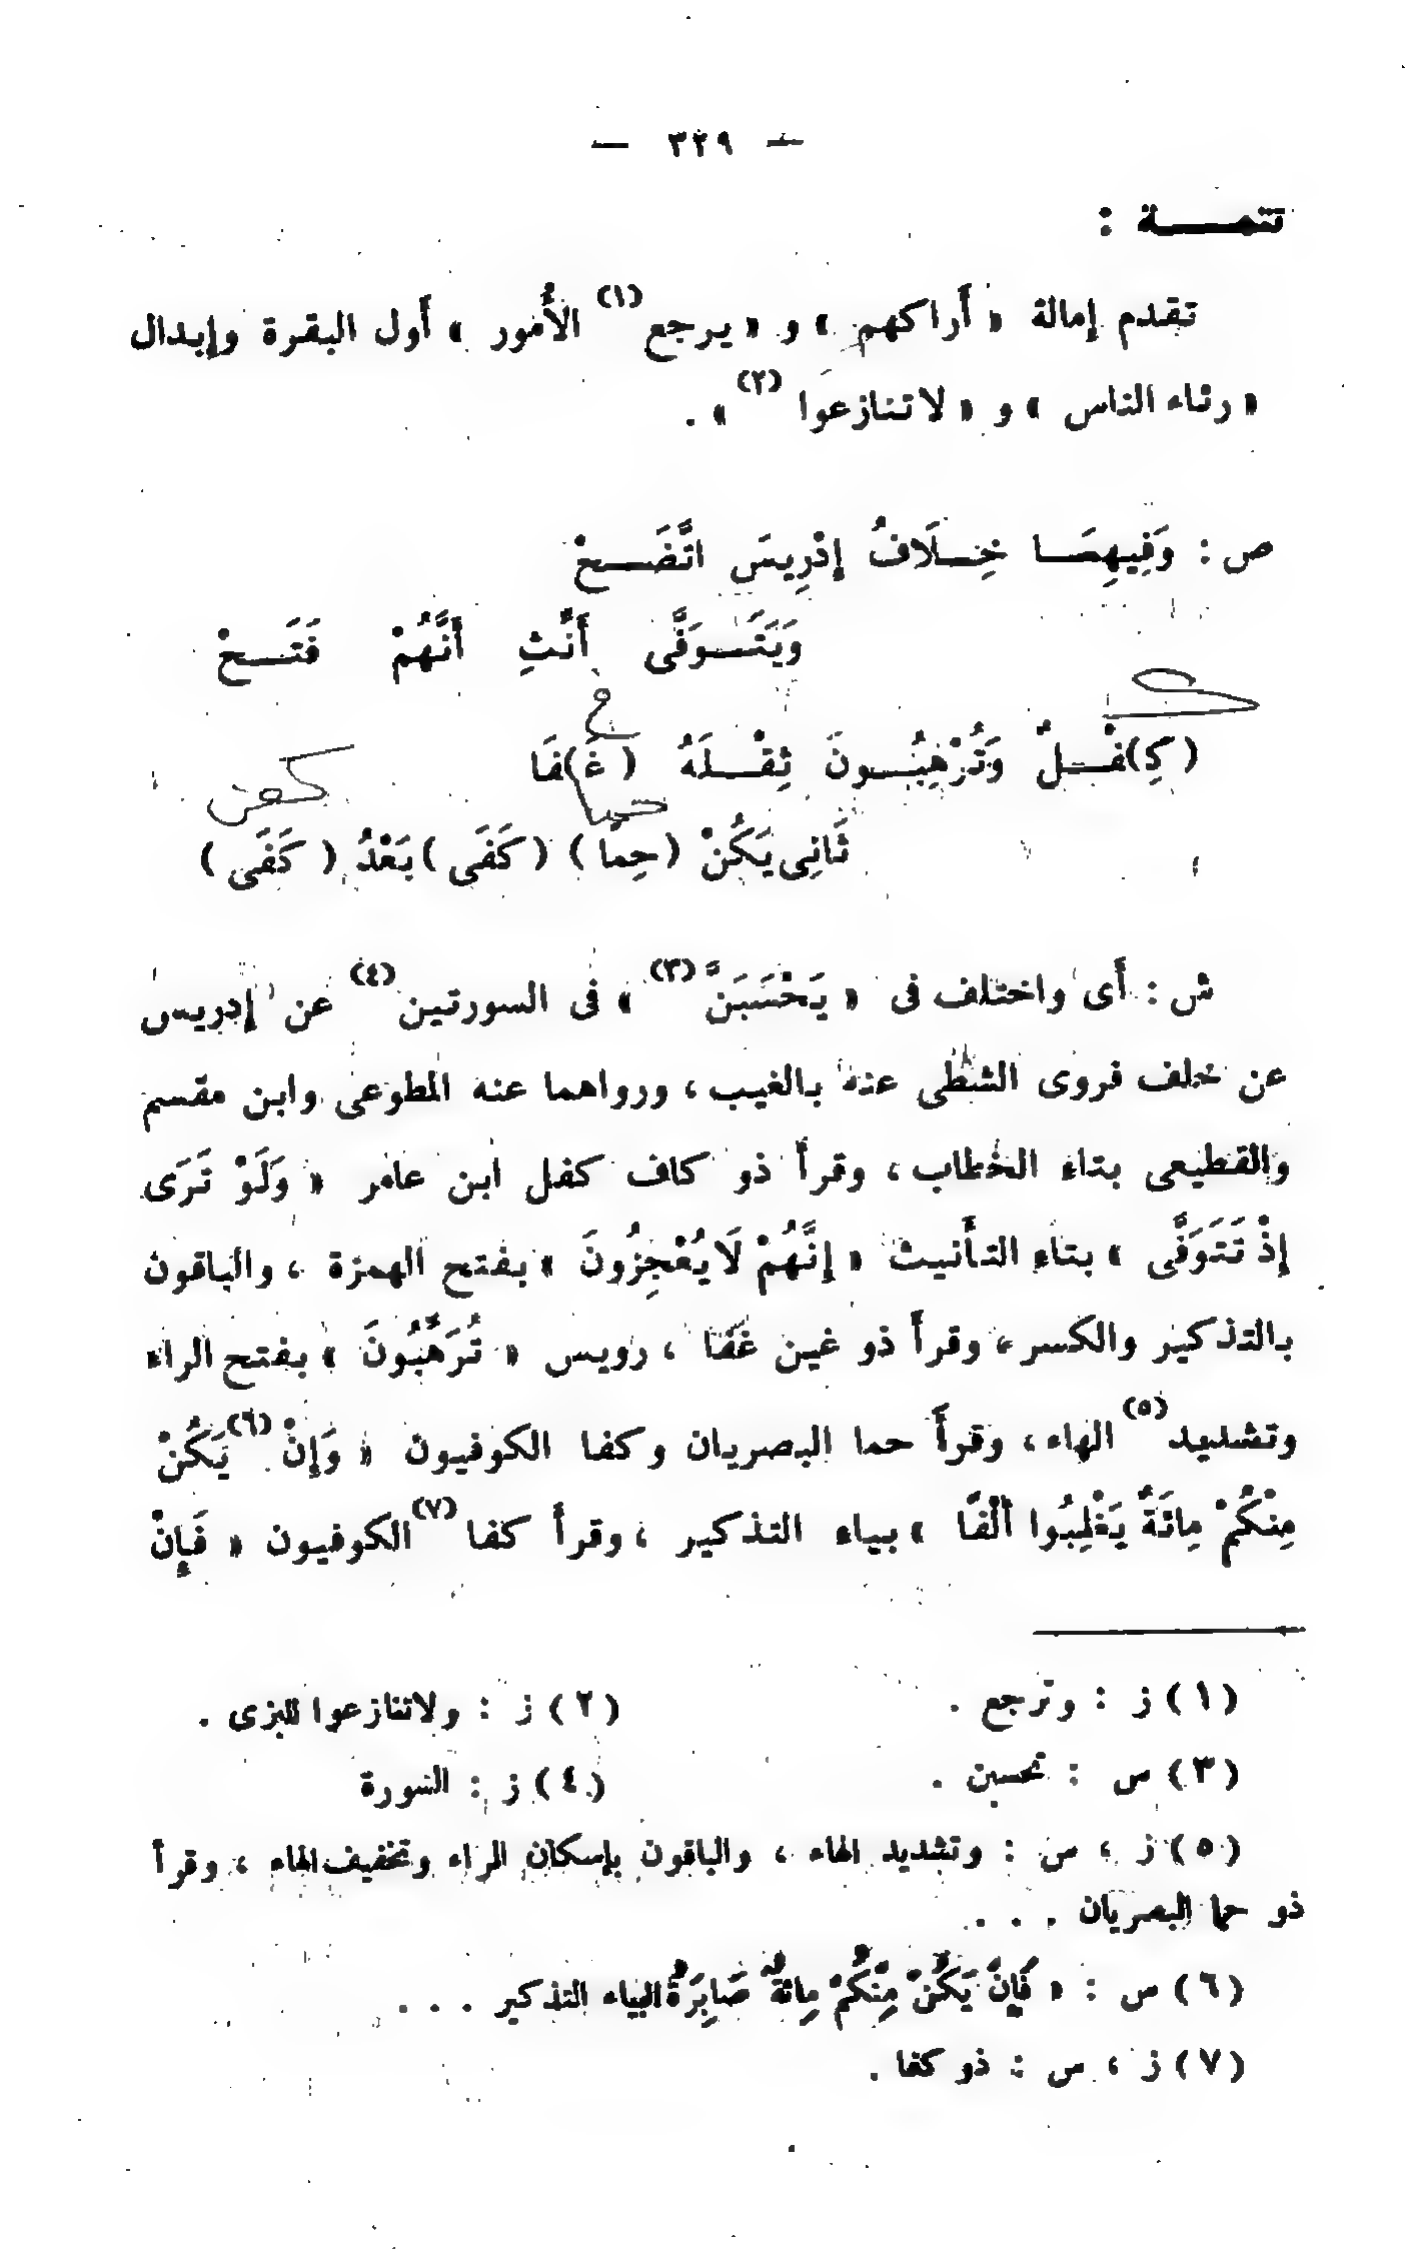 — ٣٢٩ —
تتمـــــة :
تقدم إمالة « أراكهم » و « يرجع (١) الأُمور » أول البقرة وإبدال
« رئاء الناس » و « لا تنازعوا (٢) » .
ص : وَفِيهِمَــا خِــلَافُ إِدْرِيسَ اتَّضَــحْ
وَيَتَــوَفَّى أَنِّثِ أَنَّهُمْ فَتَــحْ
(كِ)فْــلٌ وَتُرْهِبُــونَ ثِقْــلَهُ (غَ)فَا
ثَانِى يَكُنْ (حِمًا) (كَفَى) بَعْدُ (كَفَى)
ش : أَى واختلف فى « يَحْسَبَنَّ (٣) » فى السورتين (٤) عن إدريس
عن خلف فروى الشطى عنه بالغيب ، ورواهما عنه المطوعى وابن مقسم
والقطيعى بتاء الخطاب ، وقرأ ذو كاف كفل ابن عامر « وَلَوْ تَرَى
إِذْ تَتَوَفَّى » بتاء التأنيث « إِنَّهُمْ لَا يُعْجِزُونَ » بفتح الهمزة ، والباقون
بالتذكير والكسر ، وقرأ ذو غين غَفَا ، رويس « تُرَهِّبُونَ » بفتح الراء
وتشديد (٥) الهاء ، وقرأَ حما البصريان وكفا الكوفيون « وَإِنْ (٦) يَكُنْ
مِنْكُمْ مِائَةٌ يَغْلِبُوا أَلْفًا » بياء التذكير ، وقرأ كفا (٧) الكوفيون « فَإِنْ
(١) ز : وترجع .
(٢) ز : ولا تنازعوا للبزى .
(٣) س : تحسبن .
(٤) ز : السورة
(٥) ز ، س : وتشديد الهاء ، والباقون بإسكان الراء وتخفيف الهاء ، وقرأ
ذو حما البصريان . . .
(٦) س : « فَإِنْ يَكُنْ مِنْكُمْ مِائَةٌ صَابِرَةٌ » بياء التذكير . . .
(٧) ز ، س : ذو كفا .